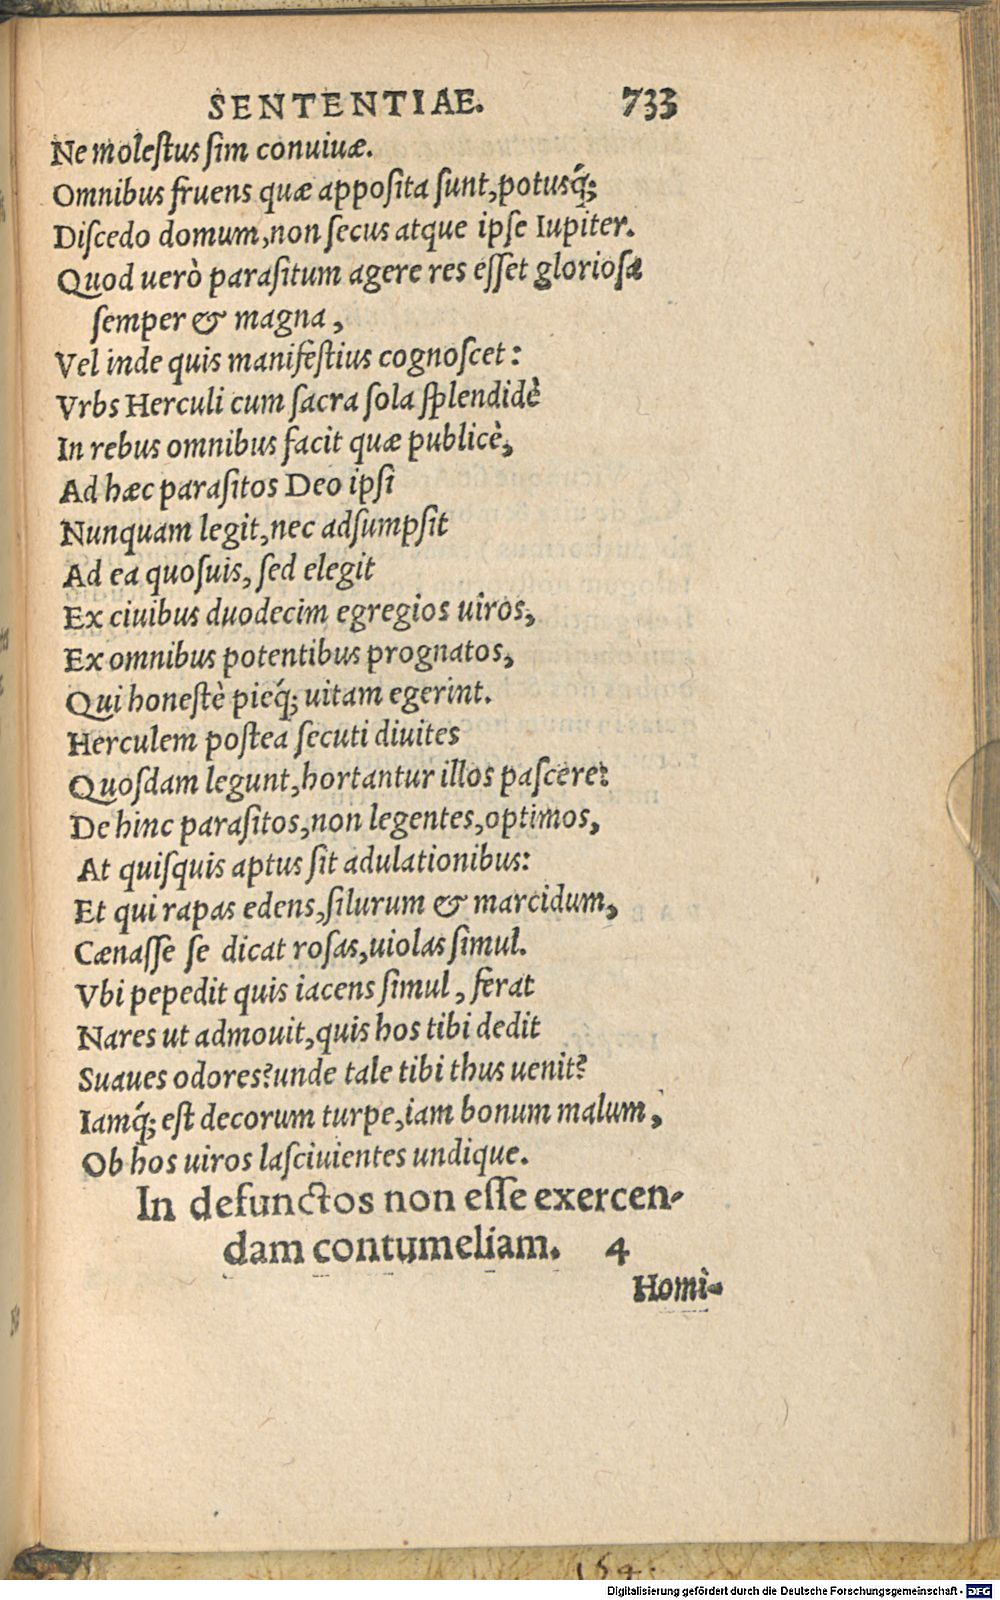 SENTENTIAE. 733
Ne molestus sim conuiuæ.
Omnibus fruens quæ apposita sunt,potusq́;
Discedo domum,non secus atque ipse Iupiter.
Quod uerò parasitum agere res esset gloriosa
semper & magna,
Vel inde quis manifestius cognoscet:
Vrbs Herculi cum sacra sola splendidè
In rebus omnibus facit quæ publicè,
Ad hæc parasitos Deo ipsi
Nunquam legit,nec adsumpsit
Ad ea quosuis, sed elegit
Ex ciuibus duodecim egregios uiros,
Ex omnibus potentibus prognatos,
Qui honestè pieq́; uitam egerint.
Herculem postea secuti diuites
Quosdam legunt,hortantur illos pascere:
De hinc parasitos,non legentes,optimos,
At quisquis aptus sit adulationibus:
Et qui rapas edens,silurum & marcidum,
Cænasse se dicat rosas,uiolas simul.
Vbi pepedit quis iacens simul, ferat
Nares ut admouit,quis hos tibi dedit
Suaues odores?unde tale tibi thus uenit?
Iamq́; est decorum turpe,iam bonum malum,
Ob hos uiros lasciuientes undique.
In defunctos non esse exercen-
dam contumeliam. 4
Homi-
154.
Digitalisierung gefördert durch die Deutsche Forschungsgemeinschaft - DFG